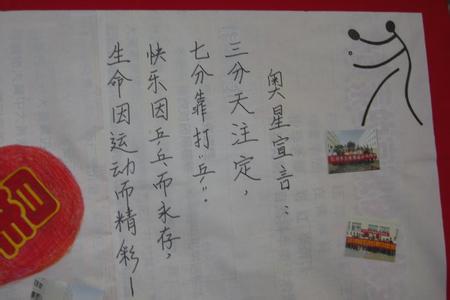 奥星宣言：
三分天注定，
七分靠打“乒”。
快乐因乒乓而永存，
生命因运动而精彩！